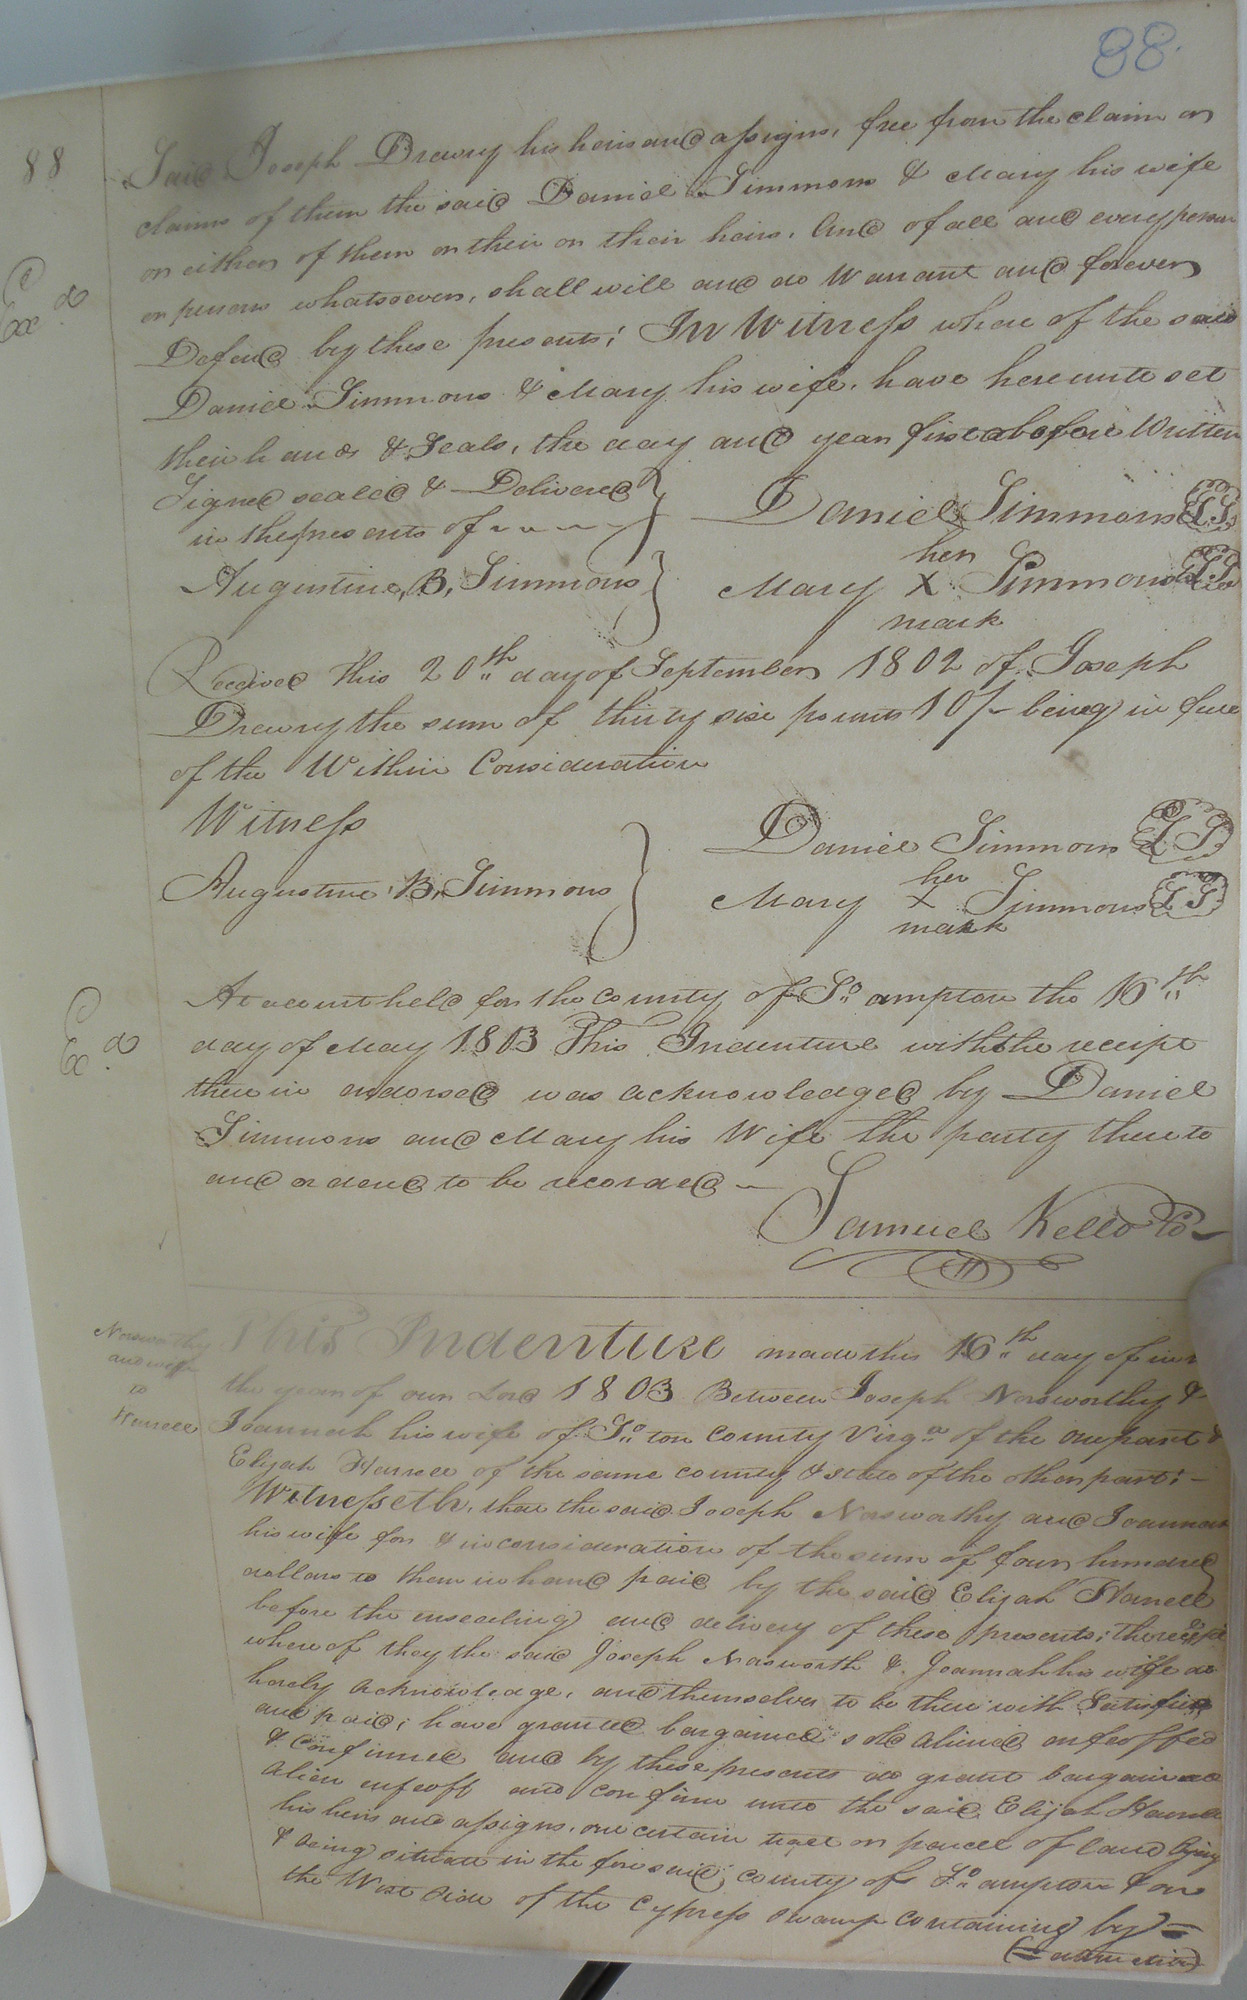 88.
88
Said Joseph Drewry his heirs and assigns, free from the claim or
claims of them the said Daniel Simmons & Mary his wife
or either of them or their or their heirs. And of all and every person
or persons whatsoever, shall will and do Warrant and forever
Exd
Defend by these presents; In Witness where of the said
Daniel Simmons & Mary his wife. have hereunto set
their hands & Seals, the day and year first above Written
Signed sealed & Delivered
in the presents of
Daniel Simmons LS
Augustine, B, Simmons
her
Mary X Simmons LS
mark
Received this 20th day of September 1802 of Joseph
Drewry the sum of thirty six pounds 10/- being in full
of the Within Consideration
Witness
Daniel Simmons LS
Augustine, B, Simmons
her
Mary X Simmons LS
mark
Exd
At a court held for the county of So ampton the 16th
day of May 1803 This Indenture with the receipt
there in endorsed was acknowledged by Daniel
Simmons and Mary his Wife the party thereto
and ordered to be recorded
Samuel Kello Co
Norsworthy
and wife
to
Harrell
This Indenture made this 16th day of in
the year of our Lord 1803 Between Joseph Norsworthy &
Joannah his wife of So ton County Virga of the one part &
Elijah Harrell of the same county & state of the other part; -
Witnesseth, that the said Joseph Norsworthy and Joannah
his wife for & in consideration of the sum of four hundred
dollars to them in hand paid by the said Elijah Harrell
before the ensealing and delivery of these presents; the receipt
where of they the said Joseph Nasworth & Joannah his wife do
hereby acknowledge, and themselves to be there with Satisfied
and paid; have granted bargained sold aliened enfeoffed
& confirmed and by these presents do grant bargain
alien enfeoff and confirm unto the said Elijah Harrell
his heirs and assigns, one certain tract or parcel of land lying
& being situate in the foresaid county of So ampton & on
the West side of the Cypress swamp containing by